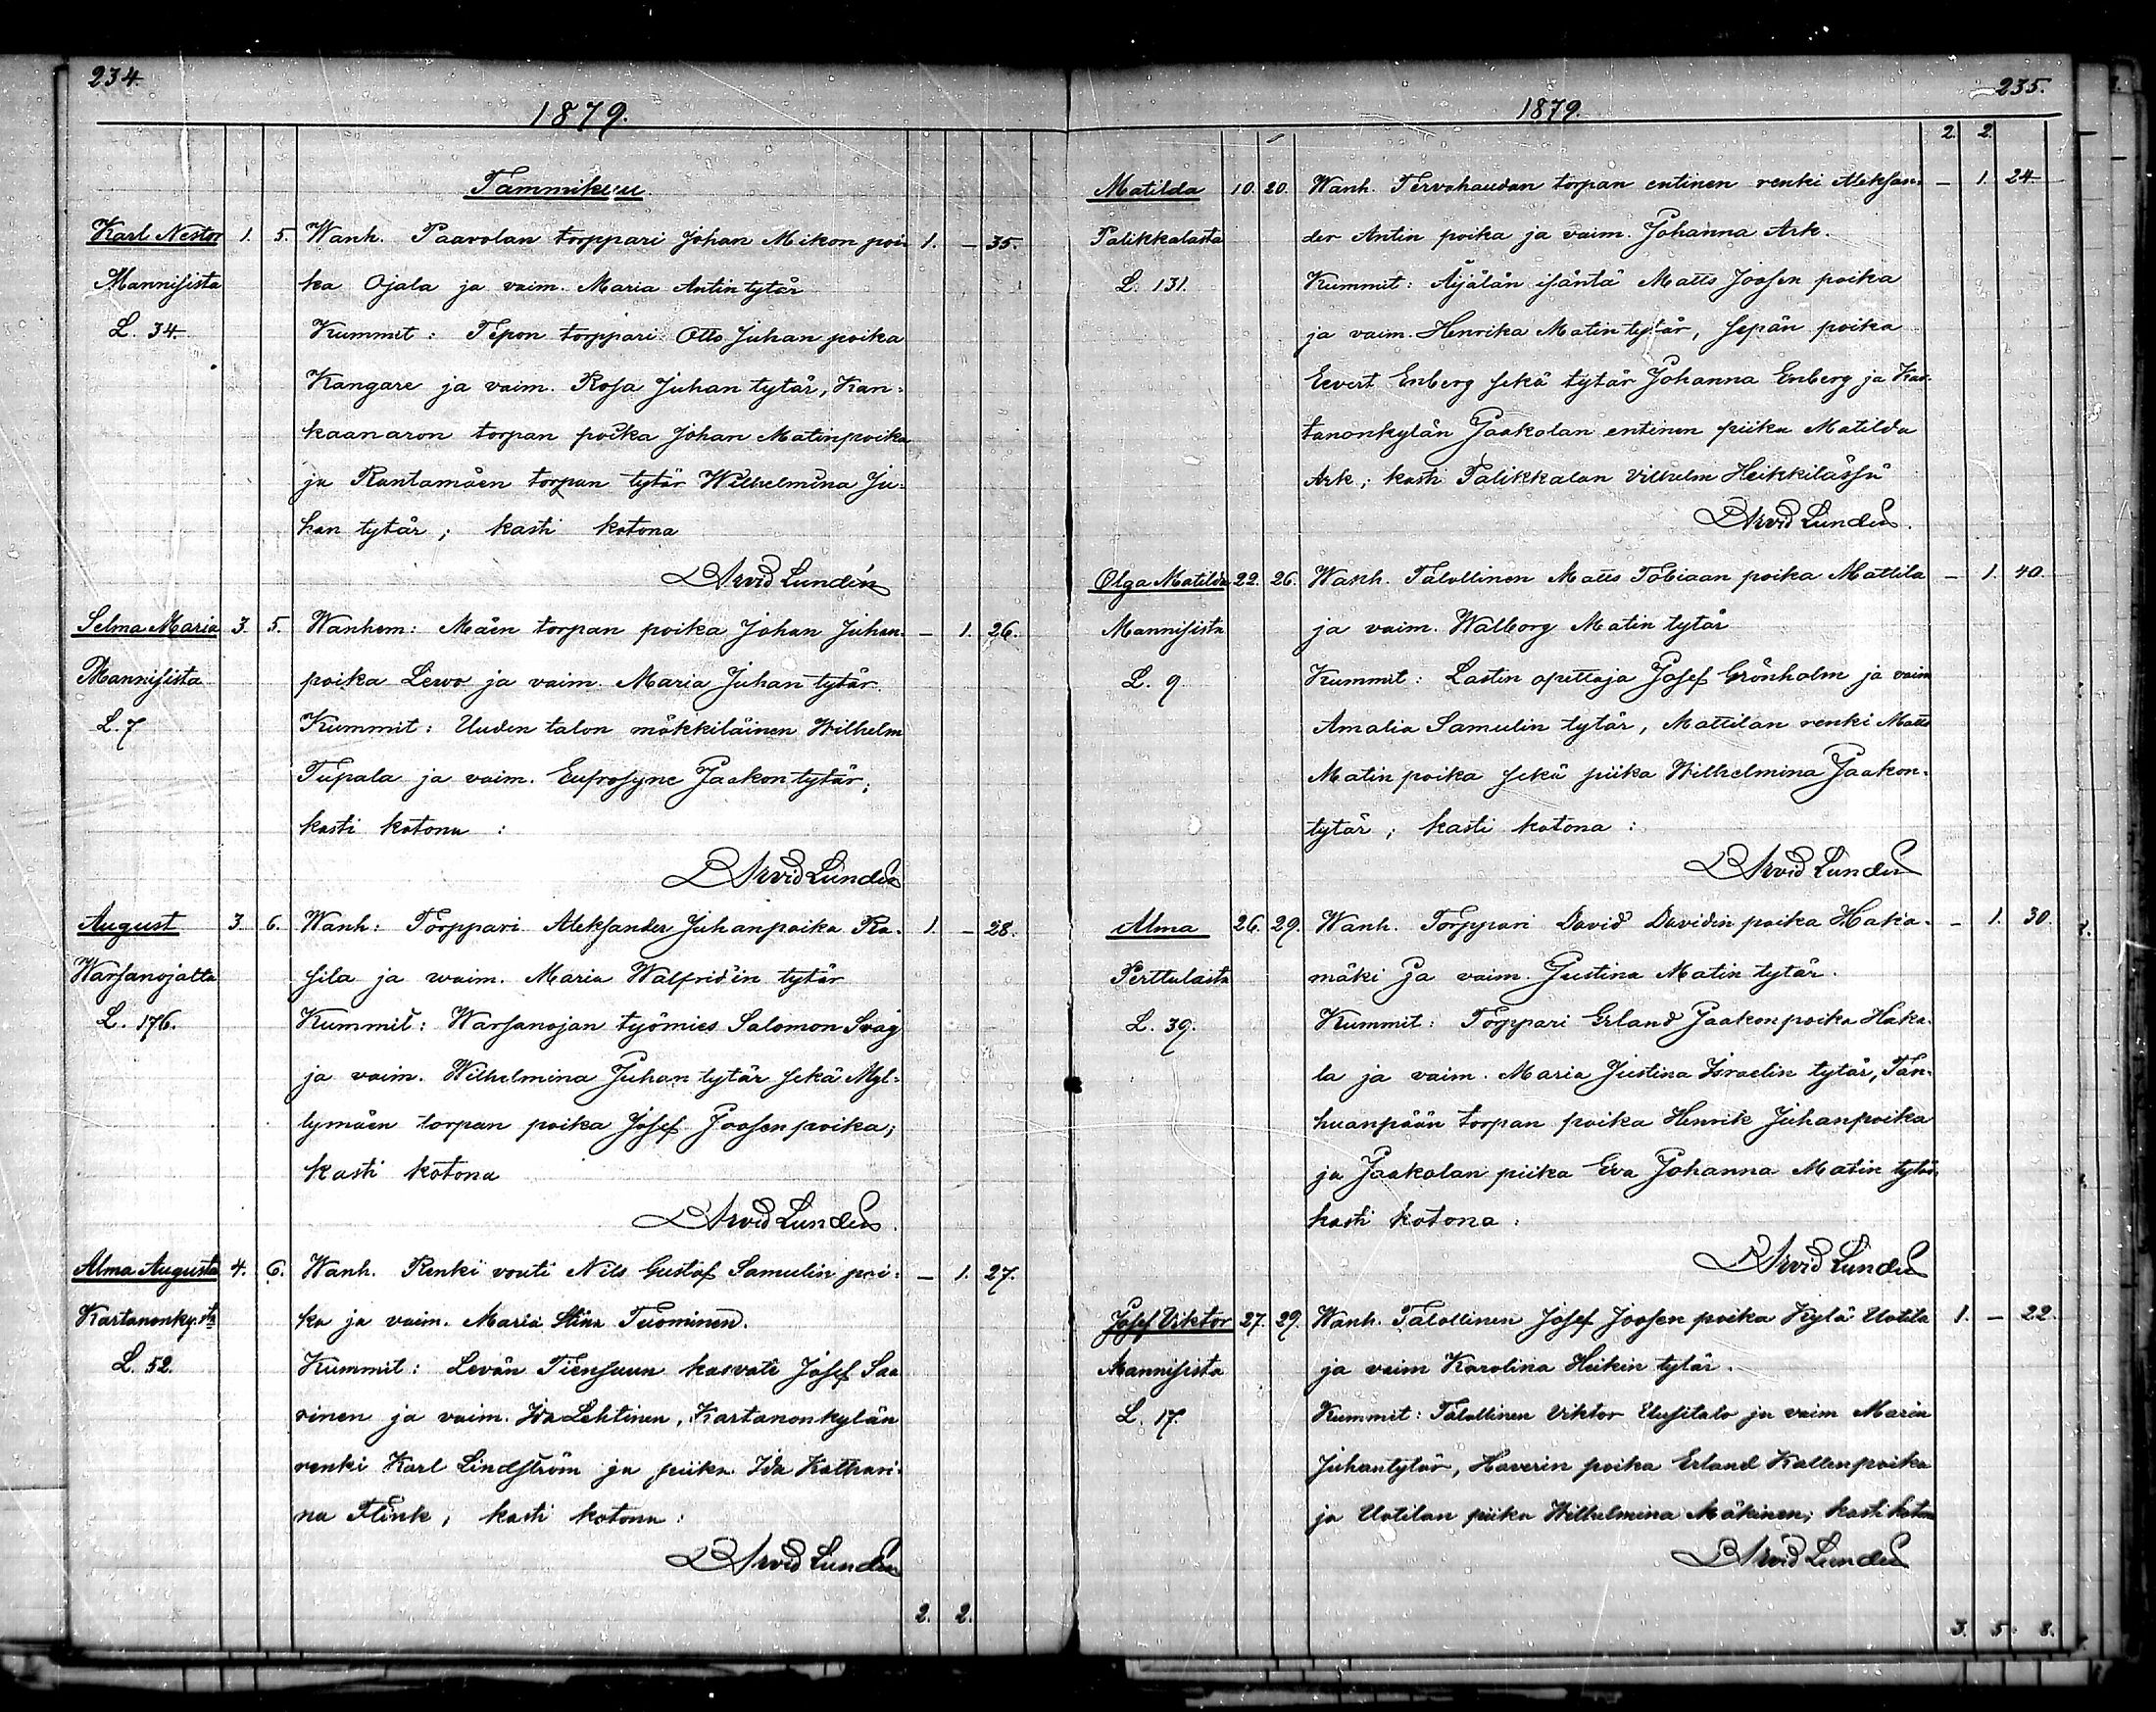 234.
1879.
Tammikuu
Karl Nestor 1. 5. Wanh. Paavolan torppari Johan Mikon poi- 1. – 35.
Mannisista ka Ojala ja vaim. Maria Antin tytär
L. 34. Kummit: Tepon torppari Otto Juhan poika
Kangare ja vaim. Rosa Juhan tytär, Kan-
kaanaron torpan poika Johan Matinpoika
ja Rantamäen torpan tytär Wilhelmina Ju-
han tytär; kasti kotona
Arvid Lundén
Selma Maria 3. 5. Wanhem: Mäen torpan poika Johan Juhan- – 1. 26.
Mannisista poika Lewo ja vaim. Maria Juhan tytär
L. 7 Kummit: Uuden talon mökkiläinen Wilhelm
Tupala ja vaim. Eufrosyne Jaakon tytär;
kasti kotona:
Arvid Lundén
August 3. 6. Wanh: Torppari Aleksander Juhanpoika Ra- 1. – 28.
Warsanojalta sila ja waim. Maria Walfrid'in tytär
L. 176. Kummit: Warsanojan työmies Salomon Svag
ja vaim. Wilhelmina Juhan tytär sekä Myl-
lymäen torpan poika Josef Joosen poika;
kasti kotona
Arvid Lundén.
Alma Augusta 4. 6. Wanh. Renki vouti Nils Gustaf Samulin poi- – 1. 27.
Kartanonky.stä ka ja vaim. Maria Stina Tuominen.
L. 52. Kummit: Levän Tiensuun kasvati Josef Saa
rinen ja vaim. Ida Lehtinen, Kartanonkylän
renki Karl Lindström ja piika Ida Kathari-
na Flink; kasti kotona:
Arvid Lundén
2. 2.
235.
1879.
2. 2.
Matilda 10. 20. Wanh. Tervahaudan torpan entinen renki Aleksan- – 1. 24.
Palikkalasta der Antin poika ja vaim. Johanna Ark.
L. 131. Kummit: Äijälän isäntä Matts Joosen poika
ja vaim. Henrika Matin tytär, sepän poika
Evert Enberg sekä tytär Johanna Enberg ja Kar-
tanonkylän Jaakolan entinen piika Matilda
Ark; kasti Palikkalan Vilhelm Heikkilässä
Arvid Lundén.
Olga Matilda 22. 26. Wanh. Talollinen Matts Tobiaan poika Mattila – 1. 40.
Mannisista ja vaim. Walborg Matin tytär
L. 9 Kummit: Lasten opettaja Josef Grönholm ja vaim
Amalia Samulin tytär, Mattilan renki Matts
Matin poika sekä piika Wilhelmina Jaakon-
tytär; kasti kotona:
Arvid Lundén
Alma 26. 29. Wanh. Torppari David Davidin poika Haka- – 1. 30.
Perttulasta mäki ja vaim. Justina Matin tytär.
L. 39. Kummit: Torppari Erland Jaakonpoika Haka-
la ja vaim. Maria Justina Israelin tytär, Tan-
huanpään torpan poika Henrik Juhanpoika
ja Jaakolan piika Eva Johanna Matin tytär
kasti kotona:
Arvid Lundén
Josef Viktor 27. 29. Wanh. Talollinen Josef Joosen poika Kylä Uotila 1. – 22.
Mannisista ja vaim Karolina Heikin tytär.
L. 17. Kummit: Talollinen Viktor Uusitalo ja vaim Maria
Juhantytär, Haverin poika Erland Kallenpoika
ja Uotilan piika Wilhelmina Mäkinen; kasti kotona
Arvid Lundén
3. 5. 8.